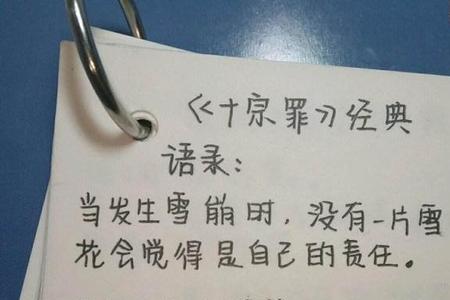 《十宗罪》经典
语录：
当发生雪崩时，没有一片雪
花会觉得是自己的责任。